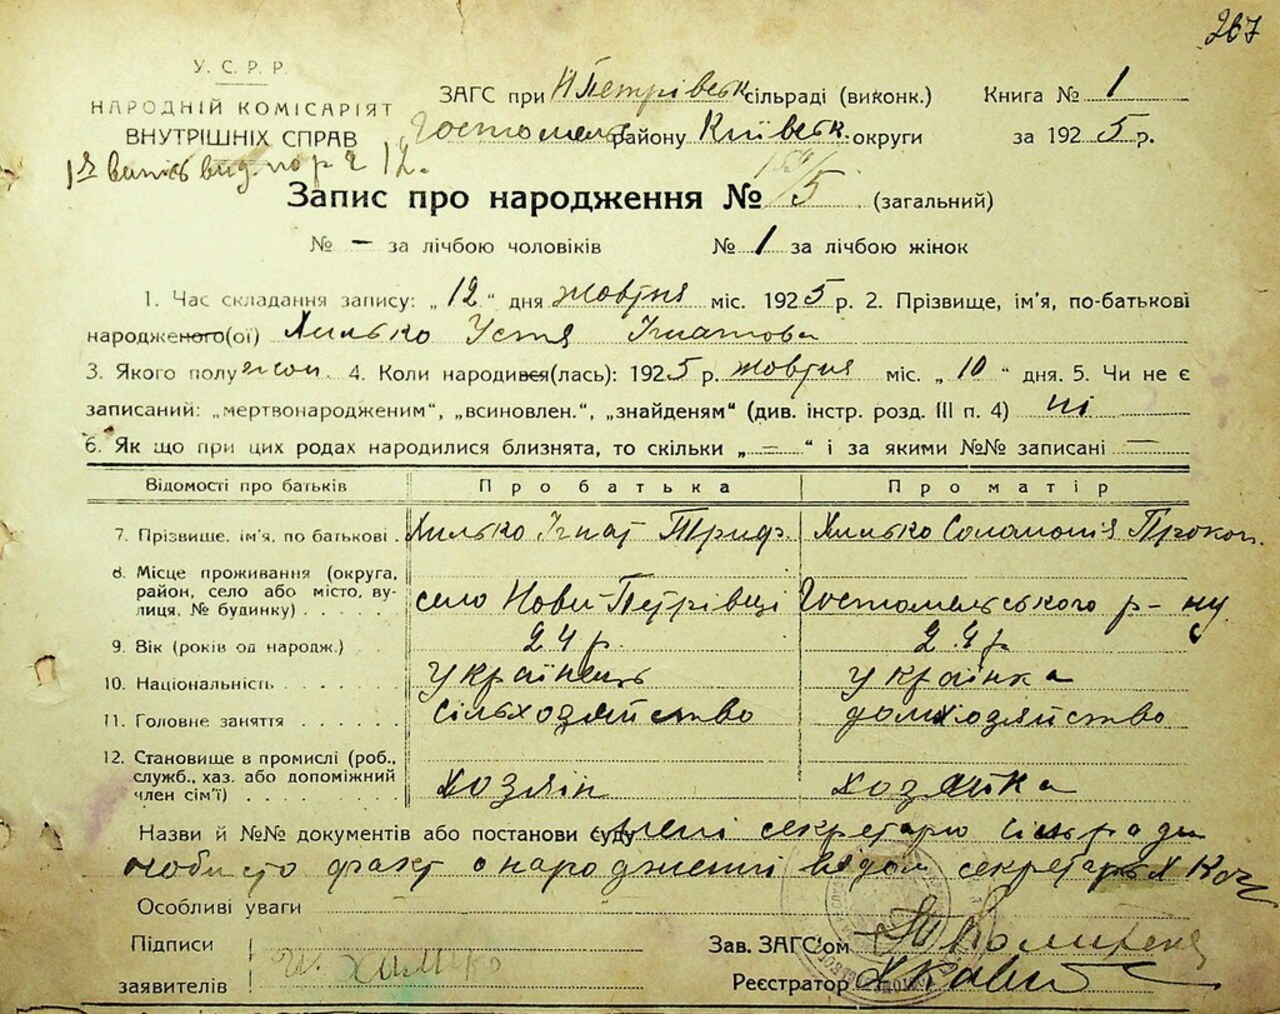 267
У. С. Р. Р.
НАРОДНІЙ КОМІСАРІЯТ
ВНУТРІШНІХ СПРАВ
ЗАГС при Н Петрівськ сільраді (виконк.)
Книга № 1
Гостомельс району Київськ. округи
за 1925 р.
12.
Запис про народження № 5 (загальний)
№ — за лічбою чоловіків № 1 за лічбою жінок
1. Час складання запису: „12“ дня жовтня міс. 1925 р. 2. Прізвище, ім'я, по-батькові
народженого(ої) Хилько Устя Ігнатова
3. Якого полу жін. 4. Коли народився(лась): 1925 р. жовтня міс. „10“ дня. 5. Чи не є
записаний: „мертвонародженим“, „всиновлен.“, „знайденям“ (див. інстр. розд. III п. 4) ні
6. Як що при цих родах народилися близнята, то скільки „=“ і за якими №№ записані =
Відомості про батьків Про батька Про матір
7. Прізвище, ім'я, по батькові. Хилько Ігнат Триф. Хилько Соломонія Прокоп.
8. Місце проживання (округа,
район, село або місто, ву-
лиця, № будинку) . . . . . село Нови-Петрівці Гостомельського р-ну
9. Вік (років од народж.) 24 р. 24 р.
10. Національність . . . . . . українець українка
11. Головне заняття . . . . . . сільхозяйство домхозяйство
12. Становище в промислі (роб.,
служб., хаз. або допоміжний
член сім'ї) . . . . . . . . хозяїн хозяйка
Назви й №№ документів або постанови суду мені секретарю сільради
особисто факт о народженні відом секретарь
Особливі уваги
Підписи
заявителів
Хилько
Зав. ЗАГС'ом
Реєстратор